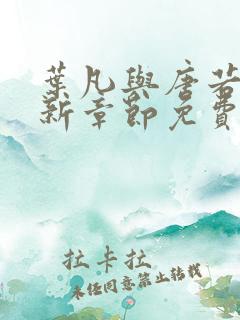 葉凡與唐若
新章節免費
拉卡拉
未经同意禁止转载